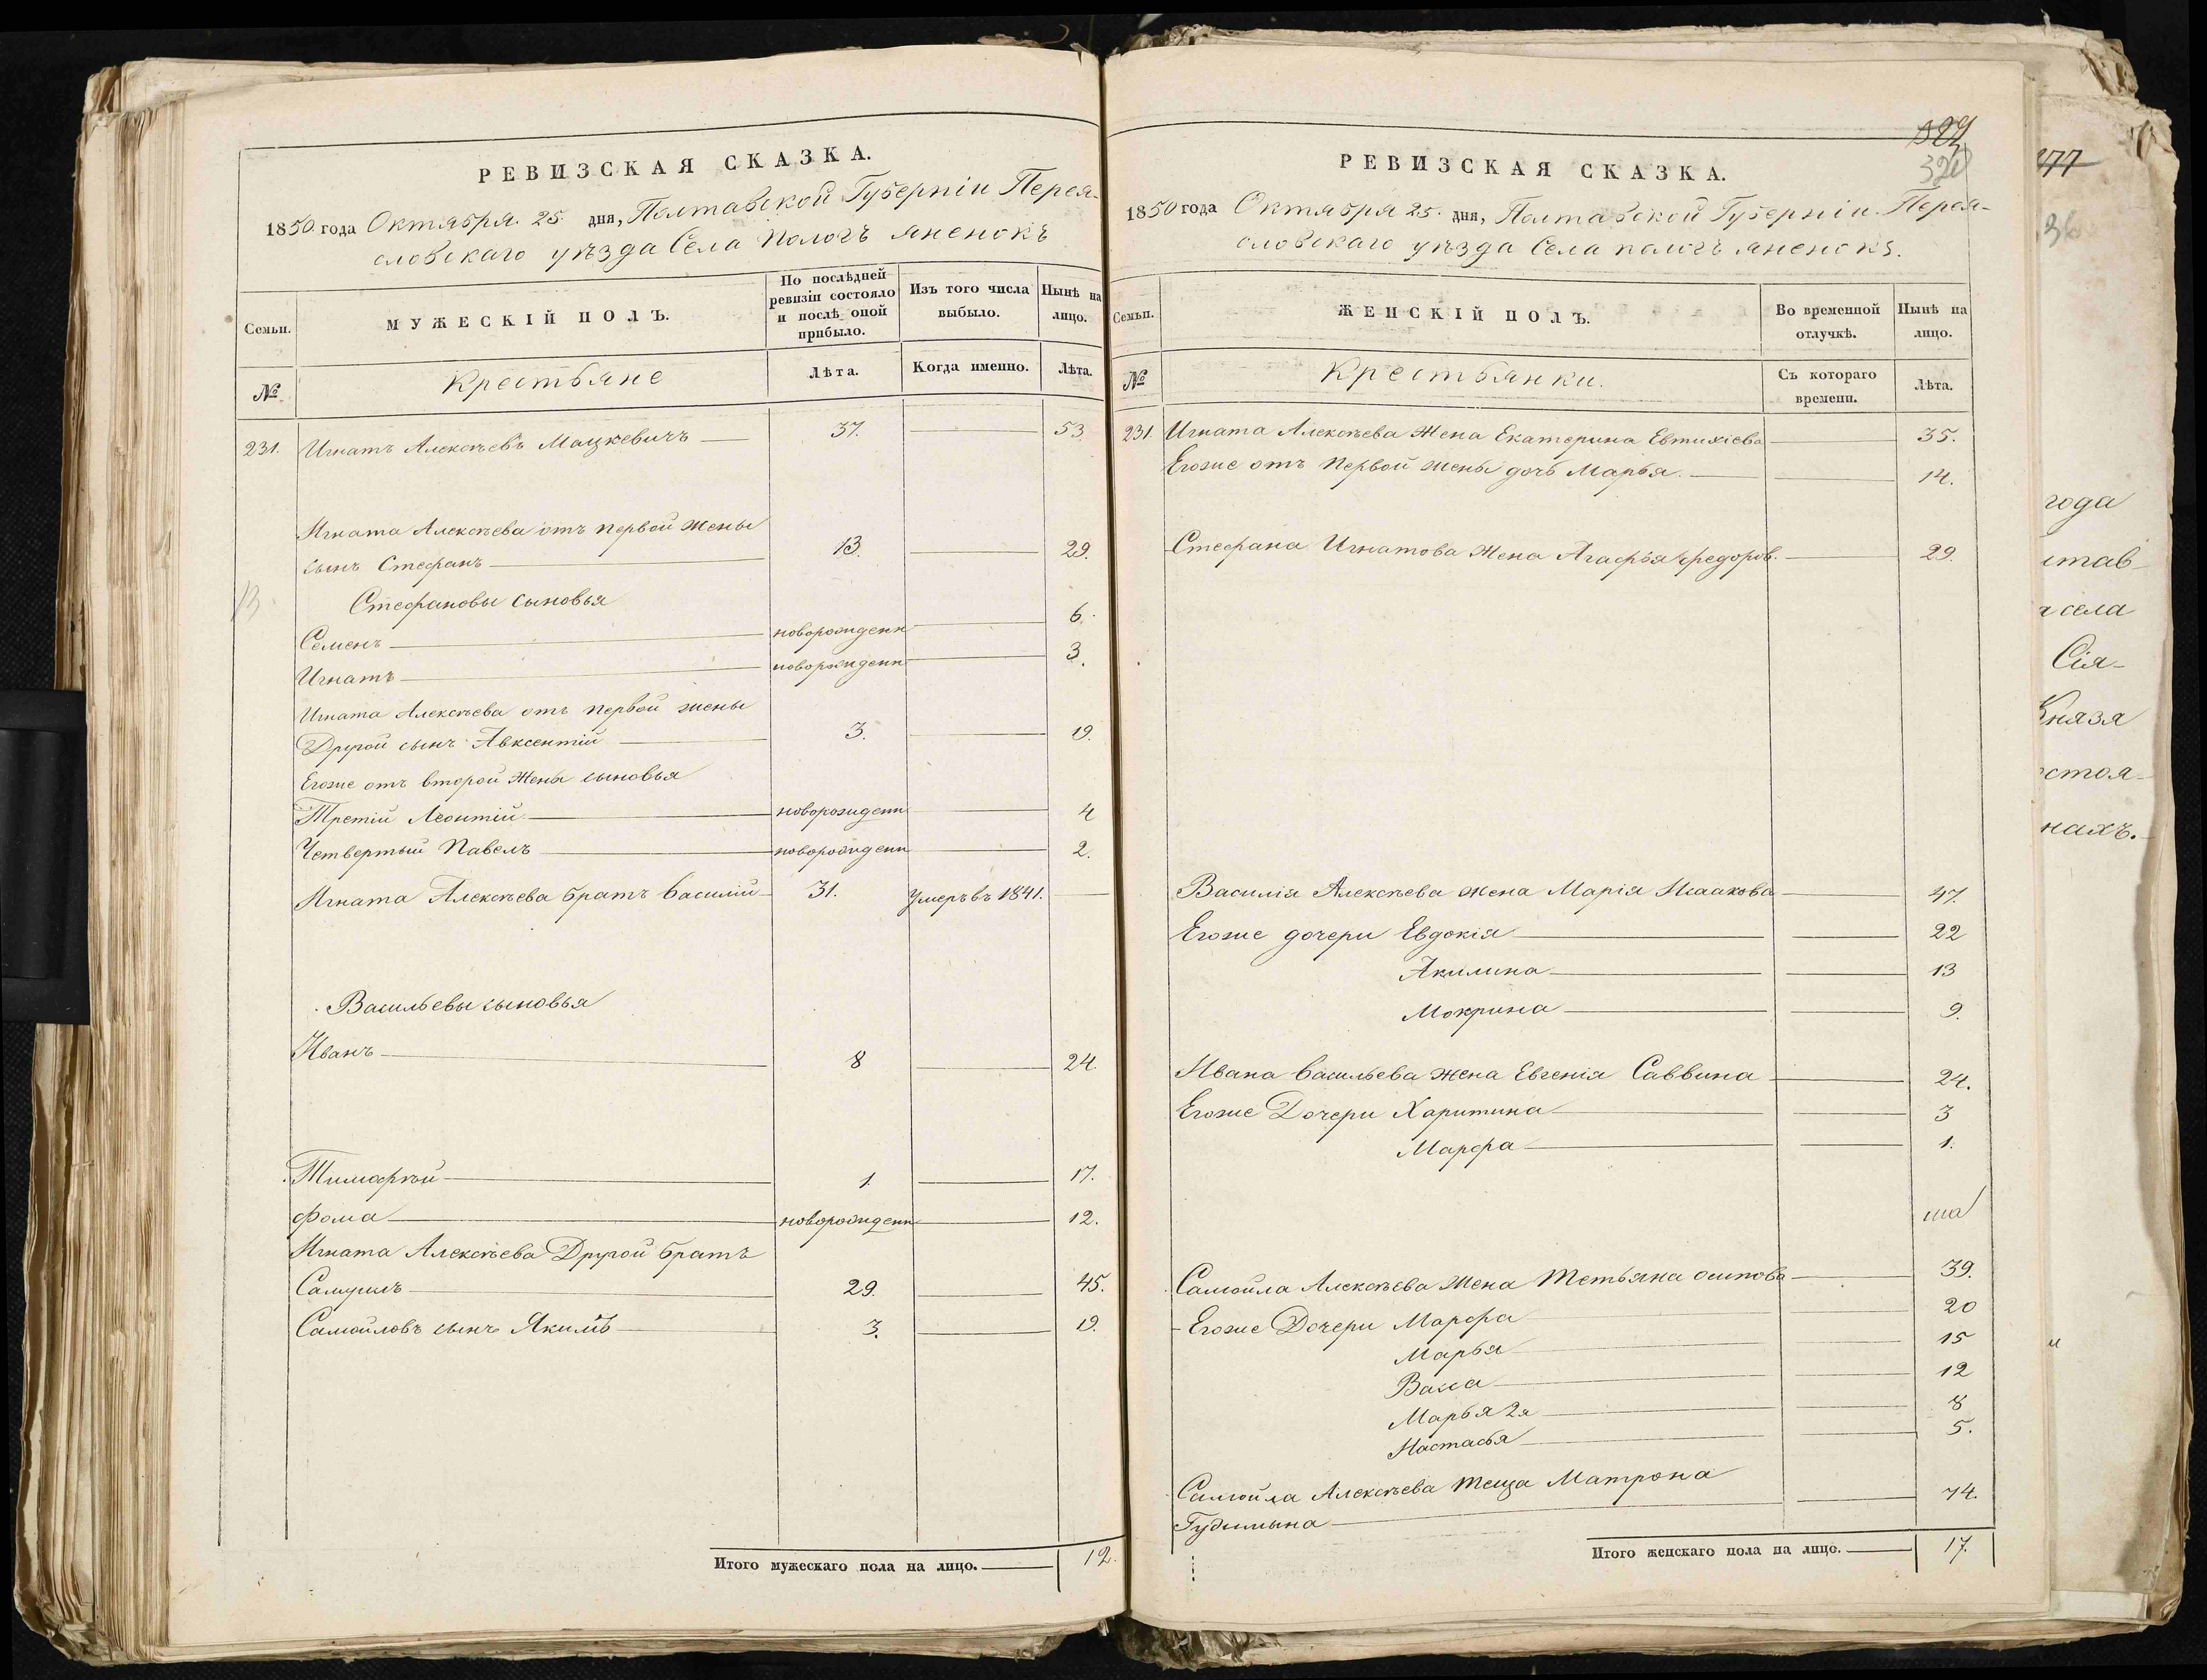 РЕВИЗСКАЯ СКАЗКА.
1850 года Октября 25. дня, Полтавской Губернiи Перея-
словскаго уѣзда Села Пологъ яненокъ
Семьи.
МУЖЕСКІЙ ПОЛЪ.
По послѣдней ревизіи состояло и послѣ оной прибыло.
Изъ того числа выбыло.
Нынѣ на лицо.
№
Крестьяне
Лѣта.
Когда именно.
Лѣта.
231. Игнатъ Алексѣевъ Мацкевичъ 37. 53.
Игната Алексѣева отъ первой жены
сынъ Стефанъ 13. 29.
13.
Стефановы сыновья
Семенъ новорожденн 6.
Игнатъ новорожденн 3.
Игната Алексѣева отъ первой жены
Другой сынъ Авксентій 3. 19.
Егоже отъ второй жены сыновья
Третій Леонтій новорожденн 4
Четвертый Павелъ новорожденн 2.
Игната Алексѣева братъ Василій 31. умеръ въ 1841.
Васильевы сыновья
Иванъ 8 24.
Тимофѣй 1. 17.
Фома новорожденн 12.
Игната Алексѣева Другой братъ
Самуилъ 29. 45.
Самойловъ сынъ Якимъ 3. 19.
Итого мужескаго пола на лицо. 12.
324
320
РЕВИЗСКАЯ СКАЗКА.
1850 года Октября 25. дня, Полтавской Губерніи Перея-
словскаго уѣзда Села пологъ яненокъ.
Семьи.
ЖЕНСКІЙ ПОЛЪ.
Во временной отлучкѣ.
Нынѣ на лицо.
№
Крестьянки.
Съ котораго времени.
Лѣта.
231. Игната Алексѣева жена Екатерина Евтихіева 35.
Егоже отъ первой жены дочь Марья. 14.
Стефана Игнатова жена Агафья Федоров. 29.
Василія Алексѣева жена Марія Исаакова 47.
Егоже дочери Евдокія 22
Акилина 13
Мокрина 9.
Ивана Васильева жена Евгенія Саввина 24.
Егоже Дочери Харитина 3
Марфа 1.
Самойла Алексѣева жена Тетьяна осипова 39.
Егоже Дочери Марфа 20
Марья 15
Васса 12
Марья 2я 8
Настасья 5.
Самойла Алексѣева теща Матрона
Гудимына 74.
Итого женскаго пола на лицо. 17.
277
36
года
тав
села
Сія-
Князя
стоя-
нахъ.